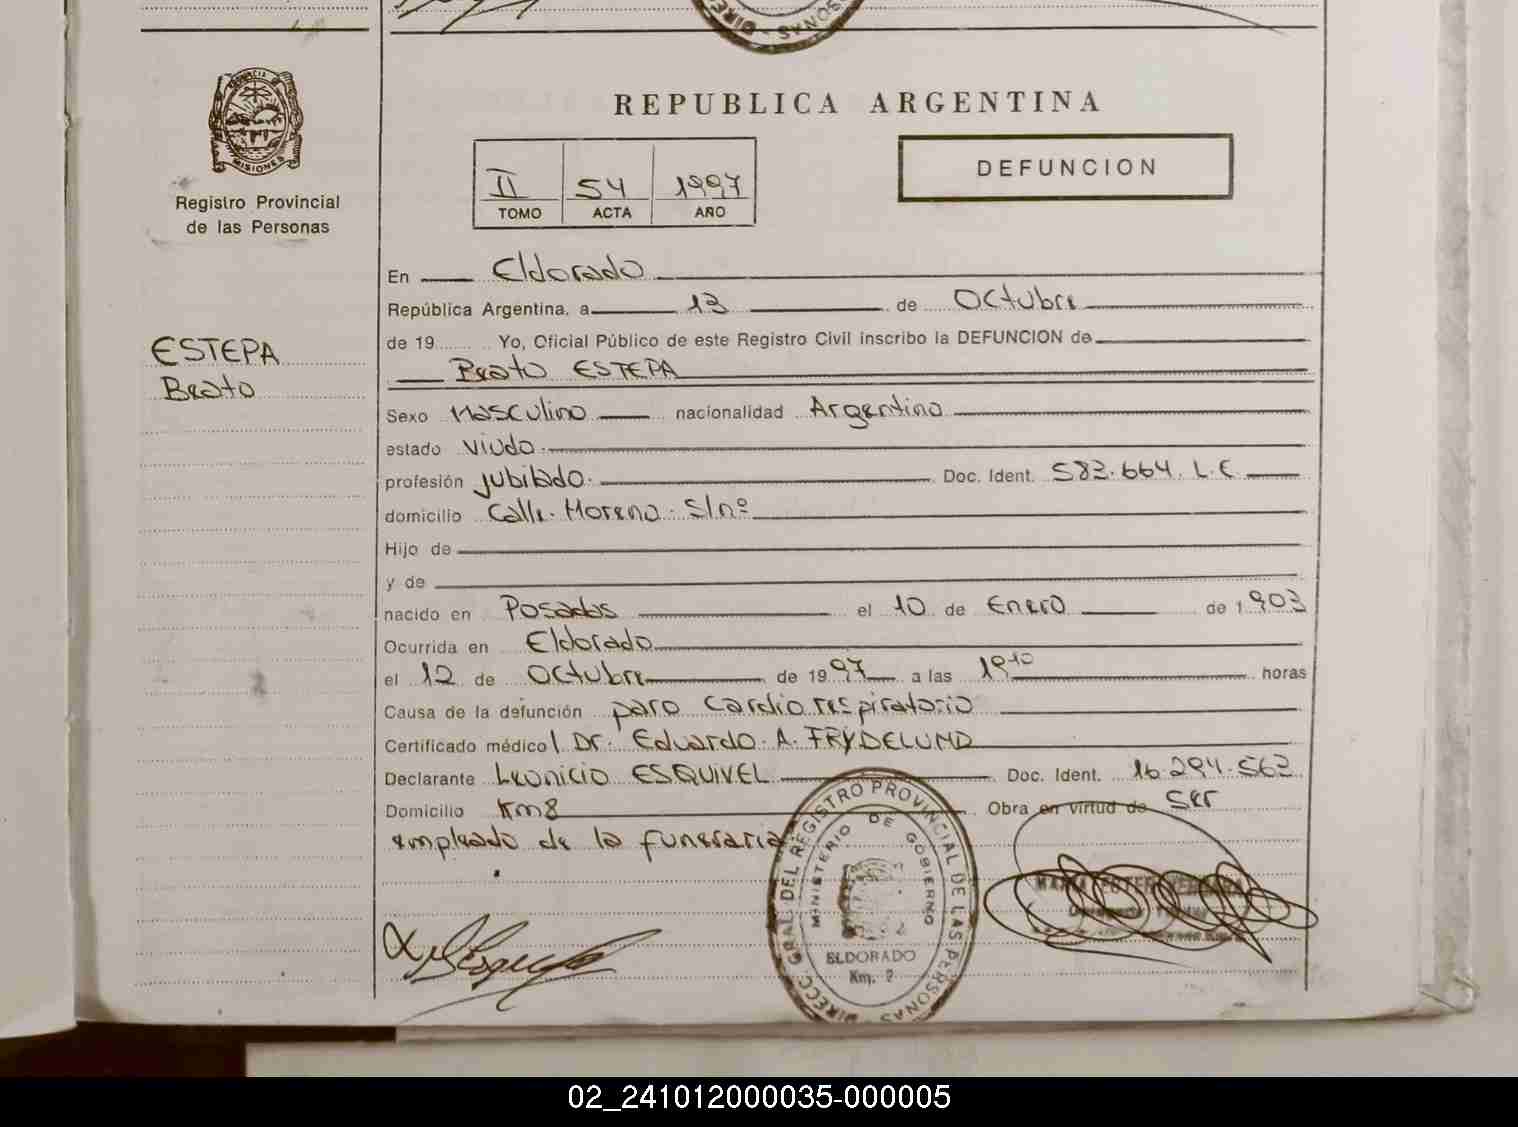 REPUBLICA ARGENTINA
MISIONES
Registro Provincial
de las Personas
II 54 1997
TOMO ACTA AÑO
DEFUNCION
ESTEPA
Beato
En Eldorado
República Argentina, a 13 de Octubre
de 19 Yo, Oficial Público de este Registro Civil inscribo la DEFUNCION de
Beato ESTEPA
Sexo Masculino nacionalidad Argentino
estado Viudo.
profesión Jubilado. Doc. Ident. 583.664. L.E
domicilio Calle. Moreno. S/nº
Hijo de
y de
nacido en Posadas el 10 de Enero de 1.903
Ocurrida en Eldorado
el 12 de Octubre de 1997 a las 19 10 horas
Causa de la defunción paro Cardio respiratorio
Certificado médico Dr. Eduardo. A. FRYDELUND
Declarante Leonicio ESQUIVEL Doc. Ident. 16.294.563
Domicilio Km8 Obra en virtud de Ser
empleado de la funeraria
DIRECC. GRAL. DEL REGISTRO PROVINCIAL DE LAS PERSONAS
MINISTERIO DE GOBIERNO
ELDORADO
Km. 2
02_241012000035-000005